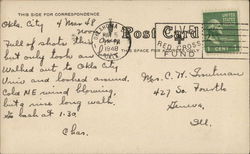 THIS SIDE FOR CORRESPONDENCE
Okla. City 4 Mar 48
Noon
Full of shots this
but only took an
Walked out to Okla City
Univ and looked around.
Cold NE wind blowing,
but a nice long walk.
Go back at 1:30
Chas.
Post Card
OKLAHOMA
MAR
1948
OKLA
GIVE
RED CROSS
FUND
Mrs. C. W. Troutman
427 So. Fourth
Geneva,
Ill.